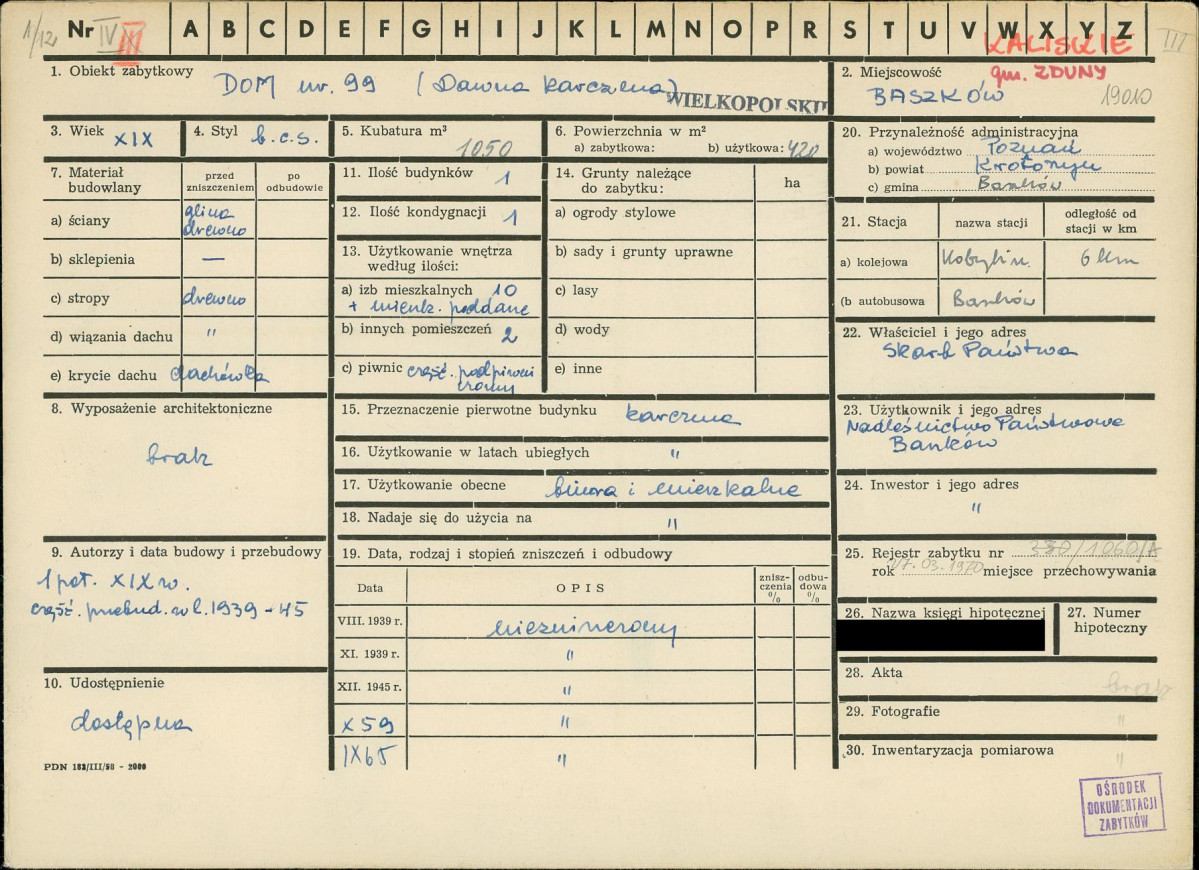 1/12 Nr IV III A B C D E F G H I J K L M N O P R S T U V W X Y Z III
KALISKIE
gm. ZDUNY
1. Obiekt zabytkowy DOM nr. 99 (Dawna karczma)
WIELKOPOLSKIE
2. Miejscowość
BASZKÓW 19010
3. Wiek XIX
4. Styl b.c.s.
5. Kubatura m³
1050
6. Powierzchnia w m²
a) zabytkowa: b) użytkowa: 420
7. Materiał budowlany
przed zniszczeniem
po odbudowie
a) ściany glina drewno
b) sklepienia —
c) stropy drewno
d) wiązania dachu "
e) krycie dachu dachówka
8. Wyposażenie architektoniczne
brak
9. Autorzy i data budowy i przebudowy
1 poł. XIX w.
część. przebud. w l. 1939 - 45
10. Udostępnienie
dostępna
PDN 182/III/58 - 2000
11. Ilość budynków 1
12. Ilość kondygnacji 1
13. Użytkowanie wnętrza
według ilości:
a) izb mieszkalnych 10
+ mieszk. poddane
b) innych pomieszczeń 2
c) piwnic część. podpiwni
czony
14. Grunty należące
do zabytku:
ha
a) ogrody stylowe
b) sady i grunty uprawne
c) lasy
d) wody
e) inne
15. Przeznaczenie pierwotne budynku karczma
16. Użytkowanie w latach ubiegłych "
17. Użytkowanie obecne biura i mieszkalne
18. Nadaje się do użycia na "
19. Data, rodzaj i stopień zniszczeń i odbudowy
Data OPIS zniszczenia % odbudowa %
VIII. 1939 r. niezmieniony
XI. 1939 r. "
XII. 1945 r. "
X 59 "
IX 65 "
20. Przynależność administracyjna
a) województwo Poznań
b) powiat Krotoszyn
c) gmina Baszków
21. Stacja
nazwa stacji
odległość od stacji w km
a) kolejowa Kobylin. 6 km
(b autobusowa Baszków
22. Właściciel i jego adres
Skarb Państwa
23. Użytkownik i jego adres
Nadleśnictwo Państwowe
Baszków
24. Inwestor i jego adres
"
25. Rejestr zabytku nr 330/1060/A
rok 17.03.1970 miejsce przechowywania
26. Nazwa księgi hipotecznej
27. Numer
hipoteczny
28. Akta brak
29. Fotografie "
30. Inwentaryzacja pomiarowa "
OŚRODEK
DOKUMENTACJI
ZABYTKÓW